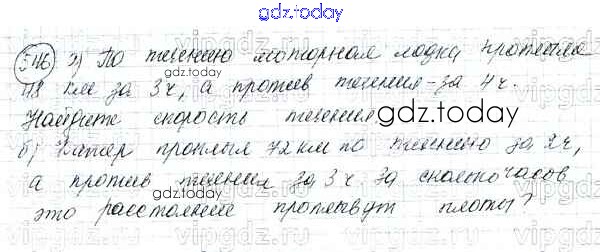 gdz.today
546 а) По течению моторная лодка проплыла
48 км за 3ч, а против течения - за 4ч.
gdz.today
Найдите скорость течения.
gdz.today
б) Катер проплыл 72 км по течению за 2ч,
а против течения за 3ч за сколько часов
gdz.today
это расстояние проплывут плоты?